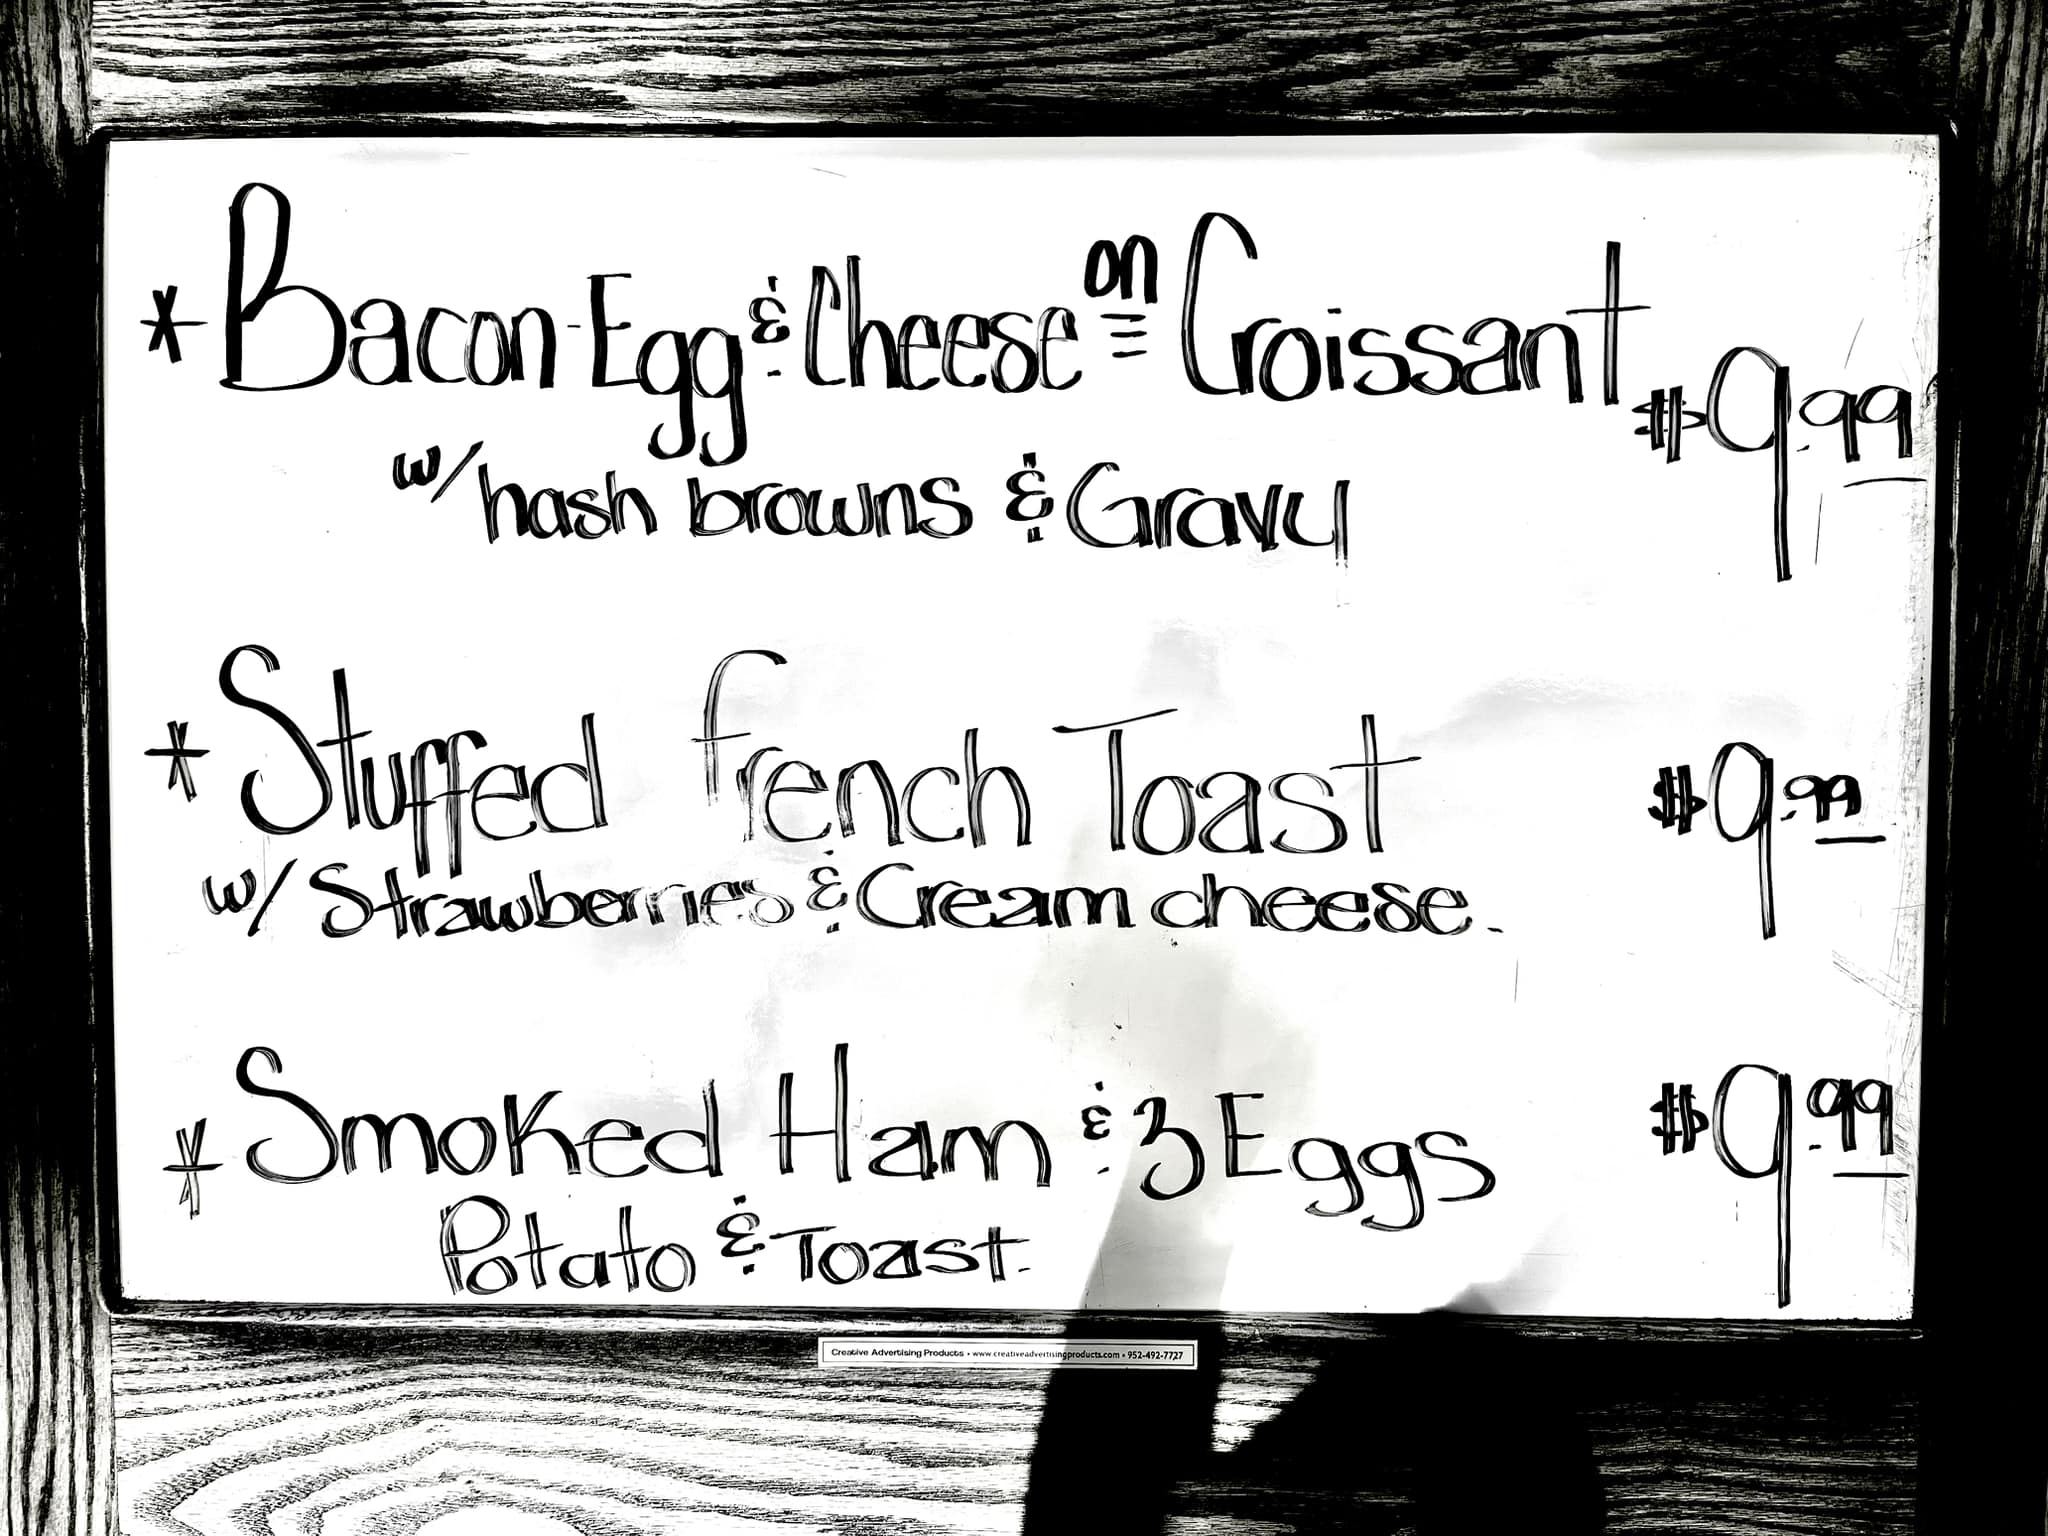 * Bacon-Egg & Cheese on Croissant $9.99
w/ hash browns & Gravy
* Stuffed French Toast $9.99
w/ Strawberries & Cream cheese.
* Smoked Ham & 3 Eggs $9.99
Potato & Toast.
Creative Advertising Products • www.creativeadvertisingproducts.com • 952-492-7727